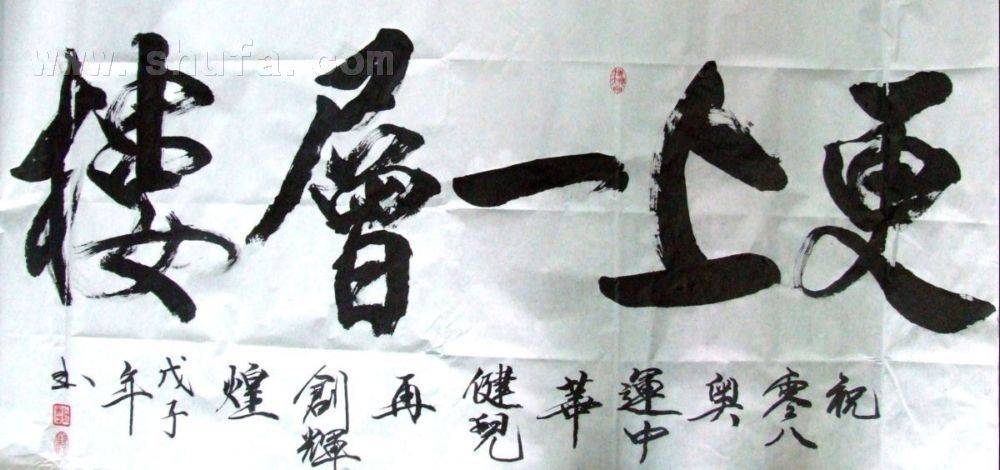 更上一層樓
祝零八奧運中華健兒再創輝煌戊子年
www.shufa.com